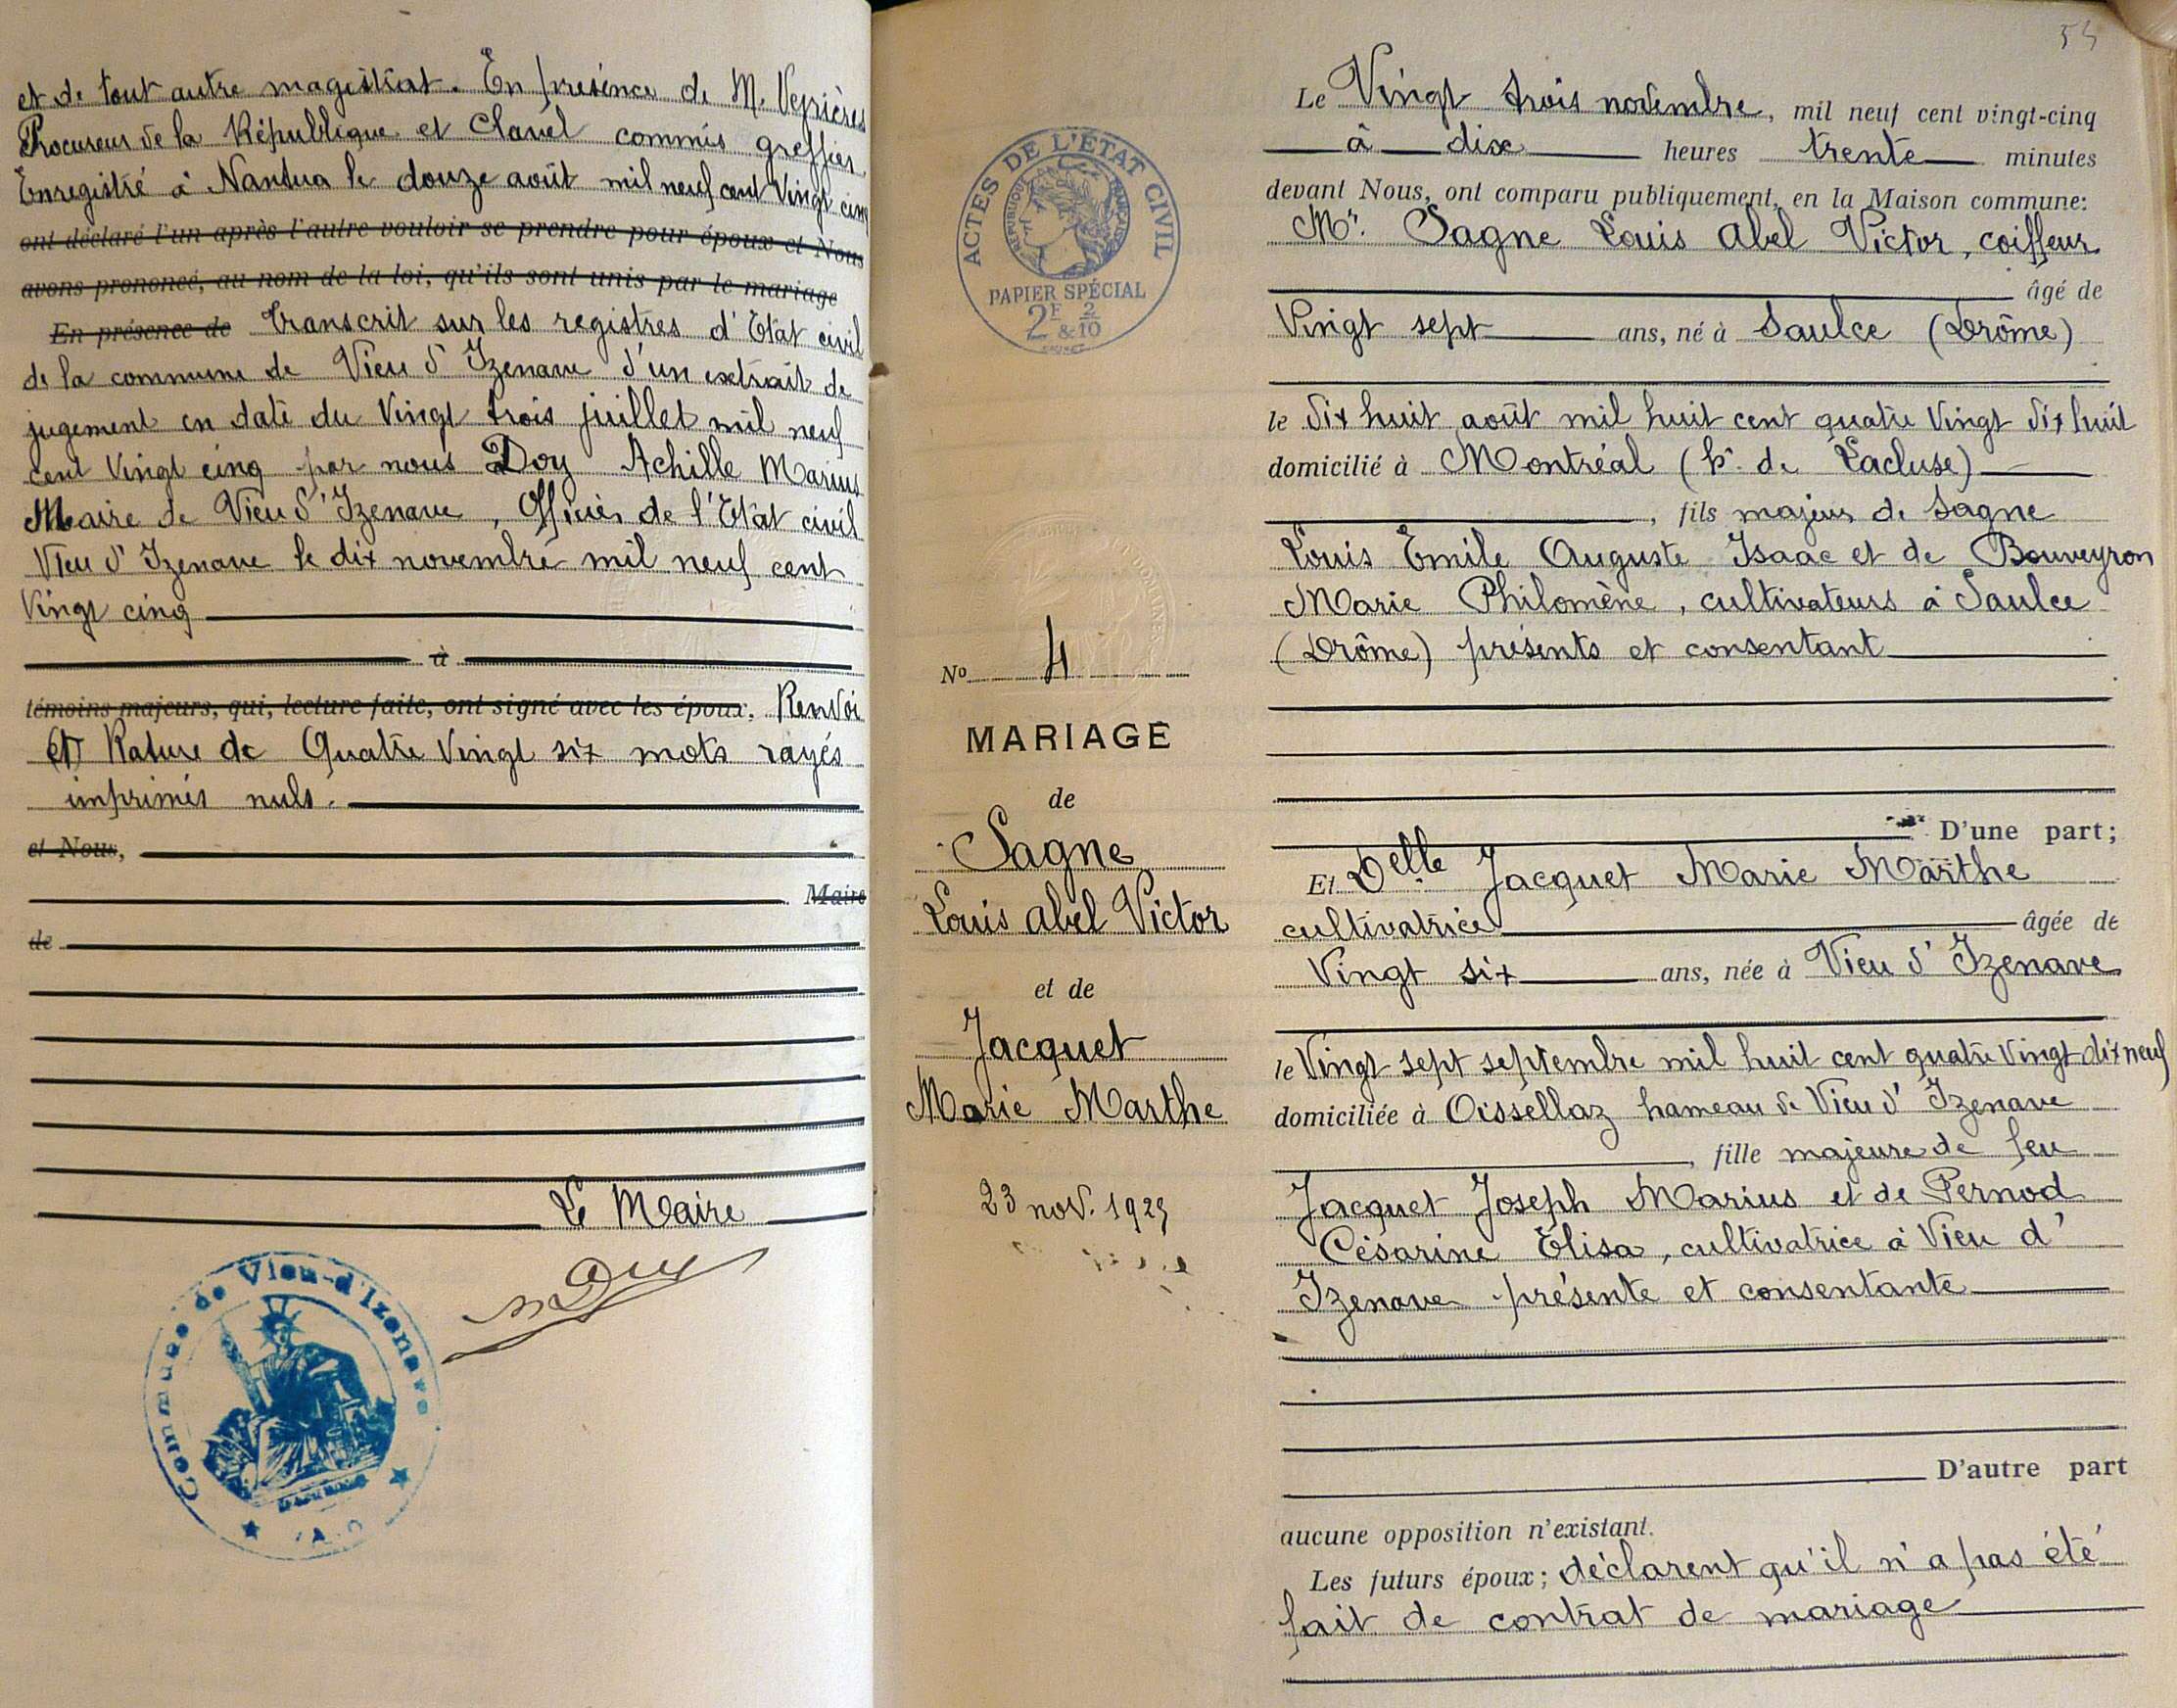 et de tout autre magistrat. En présence de M. Veyrières
Procureur de la République et Clavel commis greffier
Enregistré à Nantua le douze août mil neuf cent Vingt cinq
ont déclaré l'un après l'autre vouloir se prendre pour époux et Nous
avons prononcé, au nom de la loi, qu'ils sont unis par le mariage
En présence de Transcrit sur les registres d'Etat civil
de la commune de Vieu d'Izenave d'un extrait de
jugement en date du Vingt trois juillet mil neuf
cent Vingt cinq par nous Doy Achille Marius
Maire de Vieu d'Izenave, Officier de l'Etat civil
Vieu d'Izenave le dix novembre mil neuf cent
Vingt cinq
à
témoins majeurs, qui, lecture faite, ont signé avec les époux, Renvoi
et Rature de Quatre Vingt six mots rayés
imprimés nuls.
et Nous,
Maire
de
Le Maire
Commune de Vieu-d'Izenave
54
ACTES DE L'ÉTAT CIVIL
RÉPUBLIQUE FRANÇAISE
PAPIER SPÉCIAL
2F & 2/10
No 4
MARIAGE
de
Sagne
Louis Abel Victor
et de
Jacquet
Marie Marthe
23 nov. 1925
Le Vingt trois novembre, mil neuf cent vingt-cinq
à dix heures trente minutes
devant Nous, ont comparu publiquement, en la Maison commune:
Mr. Sagne Louis Abel Victor, coiffeur
âgé de
Vingt sept ans, né à Saulce (Drôme)
le dix huit août mil huit cent quatre Vingt dix huit
domicilié à Montréal (h. de Lacluse)
, fils majeur de Sagne
Louis Emile Auguste Isaac et de Bouveyron
Marie Philomène, cultivateurs à Saulce
(Drôme) présents et consentant
D'une part;
Et Delle Jacquet Marie Marthe
cultivatrice âgée de
Vingt six ans, née à Vieu d'Izenave
le Vingt sept septembre mil huit cent quatre Vingt dix neuf
domiciliée à Oissellaz hameau de Vieu d'Izenave
, fille majeure de feu
Jacquet Joseph Marius et de Pernod
Césarine Elisa, cultivatrice à Vieu d'
Izenave présente et consentante
D'autre part
aucune opposition n'existant.
Les futurs époux; déclarent qu'il n'a pas été
fait de contrat de mariage